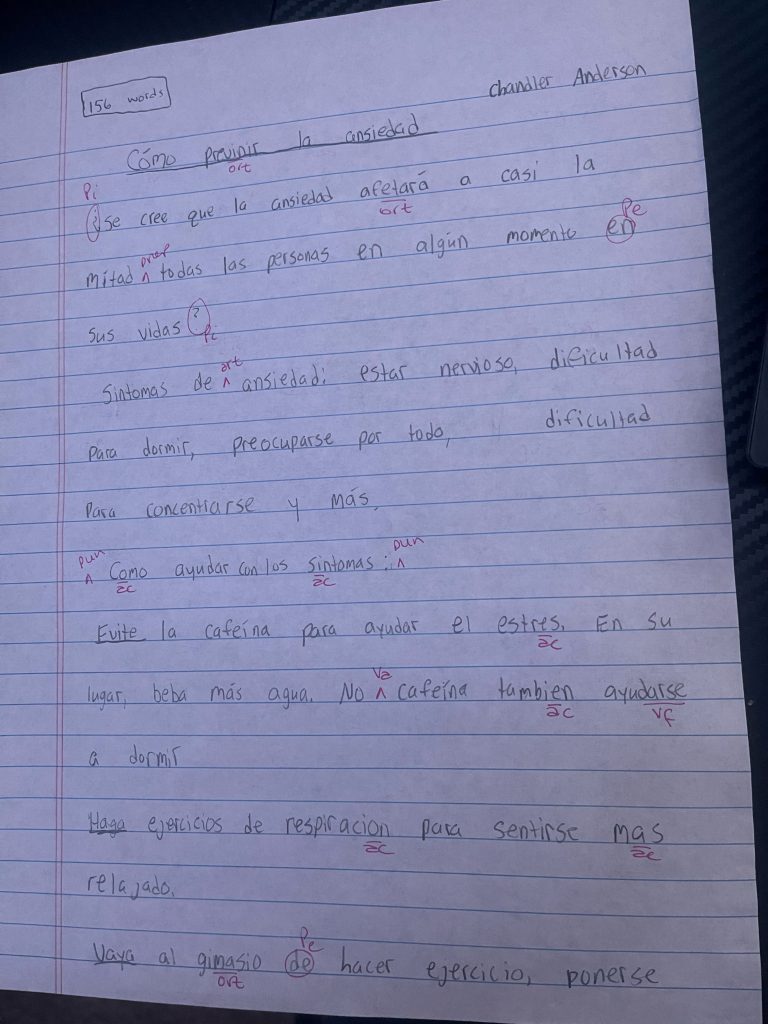 156 words
Chandler Anderson
Cómo previnir la ansiedad
ort
Pi
¿se cree que la ansiedad afetará a casi la
ort
Pe
prep
mitad ^ todas las personas en algún momento en
sus vidas?
Pi
art
Sintomas de ^ ansiedad: estar nervioso, dificultad
para dormir, preocuparse por todo, dificultad
para concentrarse y más.
pun pun
^ Como ayudar con los sintomas: ^
ac ac
Evite la cafeína para ayudar el estres. En su
ac
Va
lugar, beba más agua. No ^ cafeína tambien ayudarse
ac vf
a dormir
Haga ejercicios de respiracion para sentirse mas
ac ac
relajado.
Pe
Vaya al gimasio de hacer ejercicio, ponerse
ort